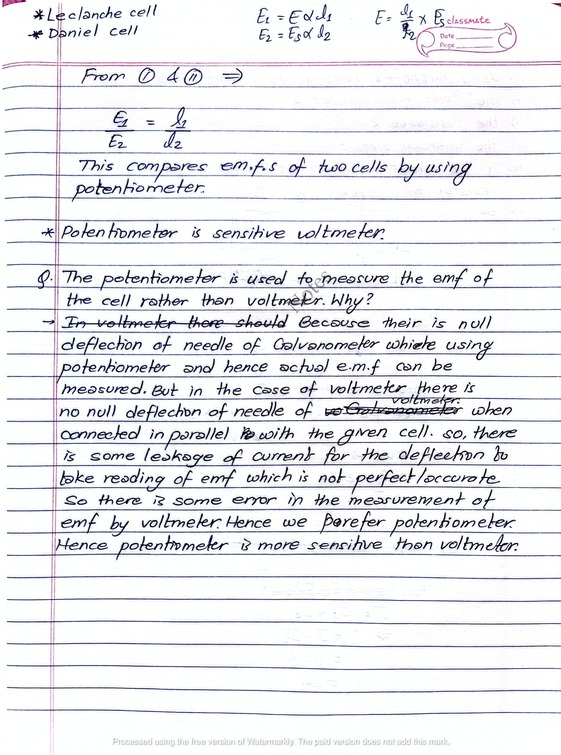 *Leclanche cell
*Daniel cell
E₁ = E ∝ l₁
E₂ = Eₛ ∝ l₂
E = l₁/l₂ × Eₛ
classmate
Date
Page
From (I) & (II) ⇒
E₁/E₂ = l₁/l₂
This compares em.f.s of two cells by using
potentiometer.
* Potentiometer is sensitive voltmeter.
Q. The potentiometer is used to measure the emf of
the cell rather than voltmeter. Why?
→ In voltmeter there should Because their is null
deflection of needle of Galvanometer while using
potentiometer and hence actual e.m.f can be
measured. But in the case of voltmeter there is
no null deflection of needle of Galvanometer voltmeter when
connected in parallel with the given cell. so, there
is some leakage of current for the deflection to
take reading of emf which is not perfect/accurate
So there is some error in the measurement of
emf by voltmeter. Hence we Porefer potentiometer.
Hence potentiometer is more sensitive than voltmeter.
Notes
Processed using the free version of Watermarkly. The paid version does not add this mark.